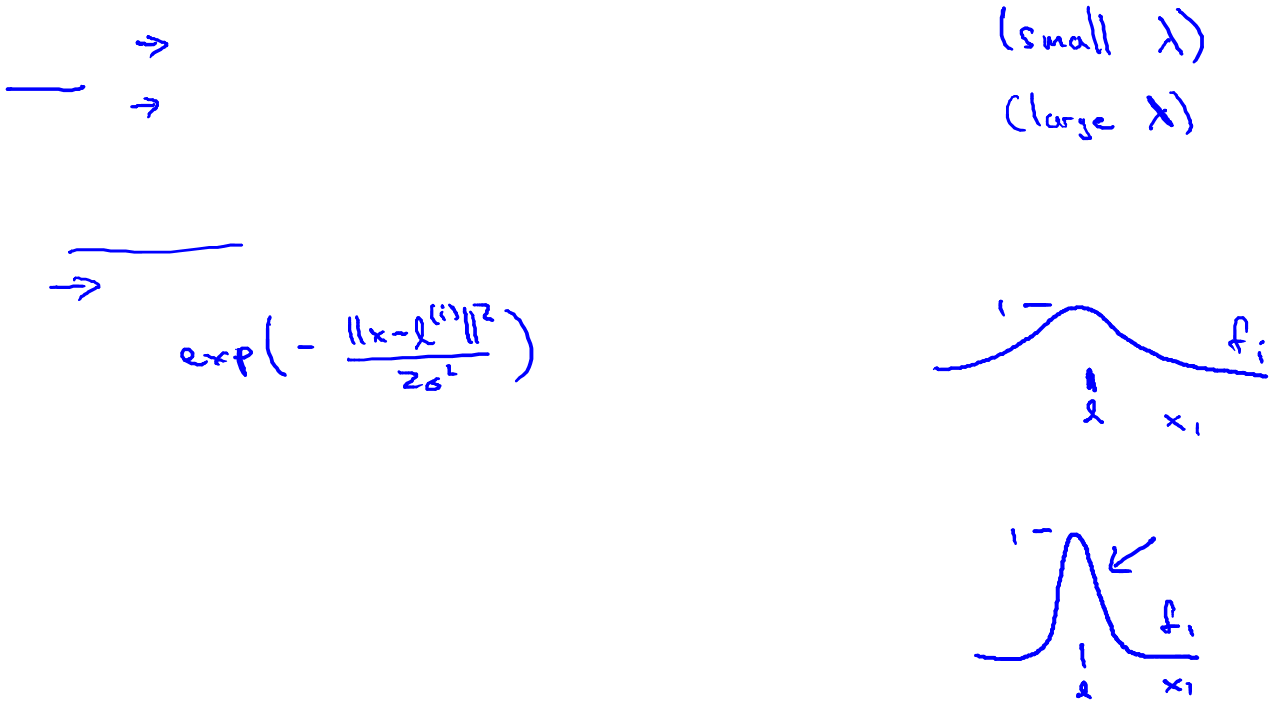 → (small λ)
→ (large λ)
→
exp(- ||x-l^(i)||² / 2σ²)
1 -
f_i
l x_1
1 -
f_1
l x_1